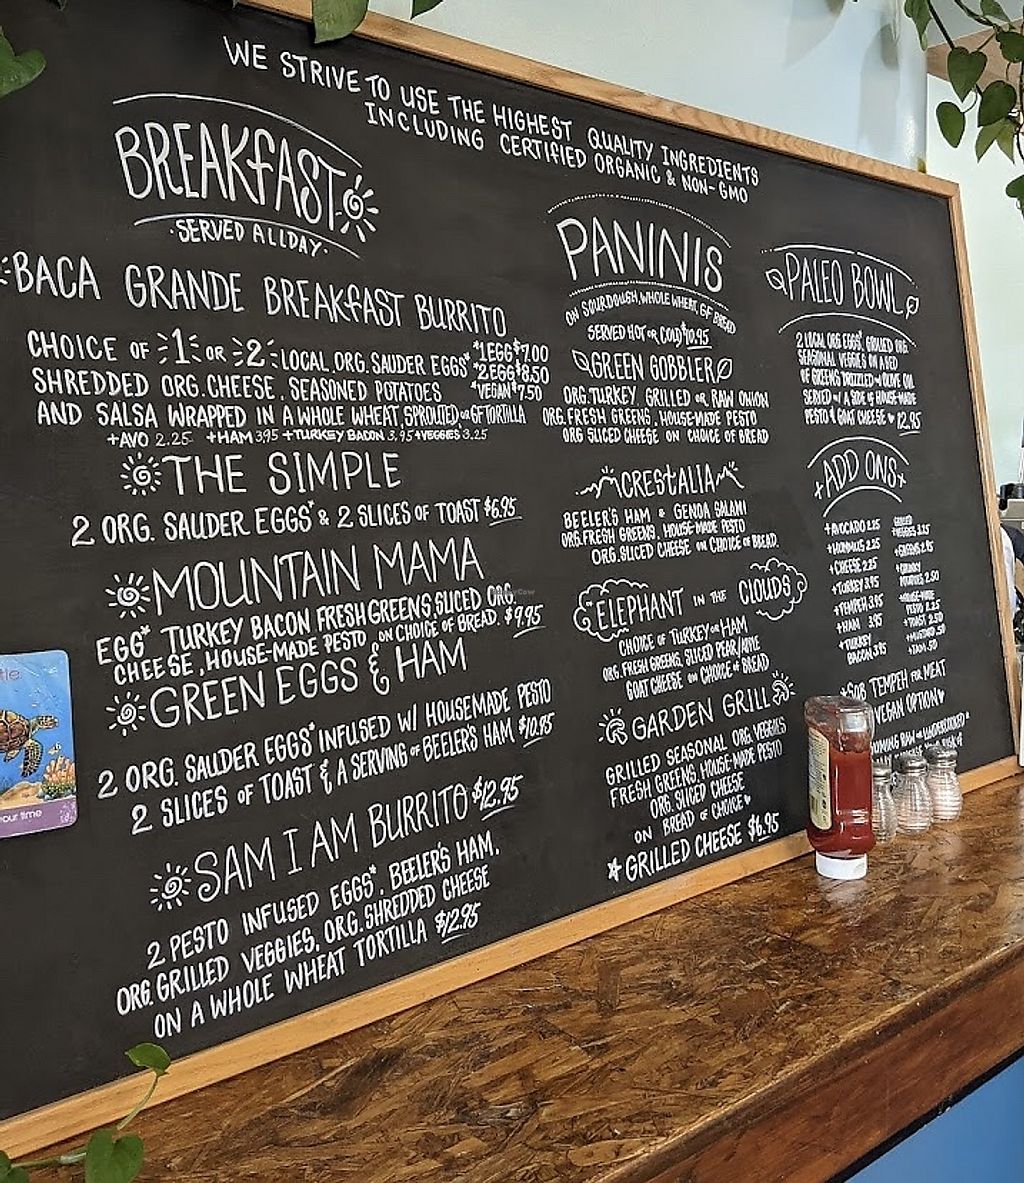 WE STRIVE TO USE THE HIGHEST QUALITY INGREDIENTS
INCLUDING CERTIFIED ORGANIC & NON-GMO
BREAKFAST
·SERVED ALL DAY·
BACA GRANDE BREAKFAST BURRITO
CHOICE OF 1 OR 2 LOCAL ORG. SAUDER EGGS* *1 EGG $7.00
SHREDDED ORG. CHEESE, SEASONED POTATOES *2 EGG $8.50
*VEGAN $7.50
AND SALSA WRAPPED IN A WHOLE WHEAT, SPROUTED, OR GF TORTILLA
+AVO 2.25 +HAM 3.95 +TURKEY BACON 3.95 +VEGGIES 3.25
THE SIMPLE
2 ORG. SAUDER EGGS* & 2 SLICES OF TOAST $6.95
MOUNTAIN MAMA
EGG* TURKEY BACON FRESH GREENS, SLICED ORG.
CHEESE, HOUSE-MADE PESTO ON CHOICE OF BREAD. $9.95
GREEN EGGS & HAM
2 ORG. SAUDER EGGS* INFUSED W/ HOUSEMADE PESTO
2 SLICES OF TOAST & A SERVING OF BEELER'S HAM $10.95
SAM I AM BURRITO $12.95
2 PESTO INFUSED EGGS*, BEELER'S HAM,
ORG. GRILLED VEGGIES, ORG. SHREDDED CHEESE
ON A WHOLE WHEAT TORTILLA $12.95
PANINIS
ON SOURDOUGH, WHOLE WHEAT, GF BREAD
SERVED HOT OR COLD $10.95
GREEN GOBBLER
ORG. TURKEY, GRILLED OR RAW ONION
ORG. FRESH GREENS, HOUSE-MADE PESTO
ORG SLICED CHEESE ON CHOICE OF BREAD
CRESTALIA
BEELER'S HAM & GENOA SALAMI
ORG. FRESH GREENS, HOUSE-MADE PESTO
ORG. SLICED CHEESE ON CHOICE OF BREAD
ELEPHANT IN THE CLOUDS
CHOICE OF TURKEY OR HAM
ORG. FRESH GREENS, SLICED PEAR/APPLE
GOAT CHEESE ON CHOICE OF BREAD
GARDEN GRILL
GRILLED SEASONAL ORG. VEGGIES
FRESH GREENS, HOUSE-MADE PESTO
ORG. SLICED CHEESE
ON BREAD OF CHOICE
GRILLED CHEESE $6.95
PALEO BOWL
2 LOCAL ORG EGGS*, GRILLED ORG.
SEASONAL VEGGIES ON A BED
OF GREENS DRIZZLED W/ OLIVE OIL
SERVED W/ A SIDE OF HOUSE-MADE
PESTO & GOAT CHEESE 12.95
+ADD ONS+
+AVOCADO 2.25
+HUMMUS 2.25
+CHEESE 2.25
+TURKEY 3.95
+TEMPEH 3.95
+HAM 3.95
+TURKEY
BACON 3.95
GRILLED
+VEGGIES 3.25
+GREENS 2.95
POTATOES 2.50
+HOUSE-MADE
PESTO 2.25
+TOAST 2.50
+MUSTARD .50
+JAM .50
SUB TEMPEH FOR MEAT
VEGAN OPTION
RAW OR UNDERCOOKED
your time